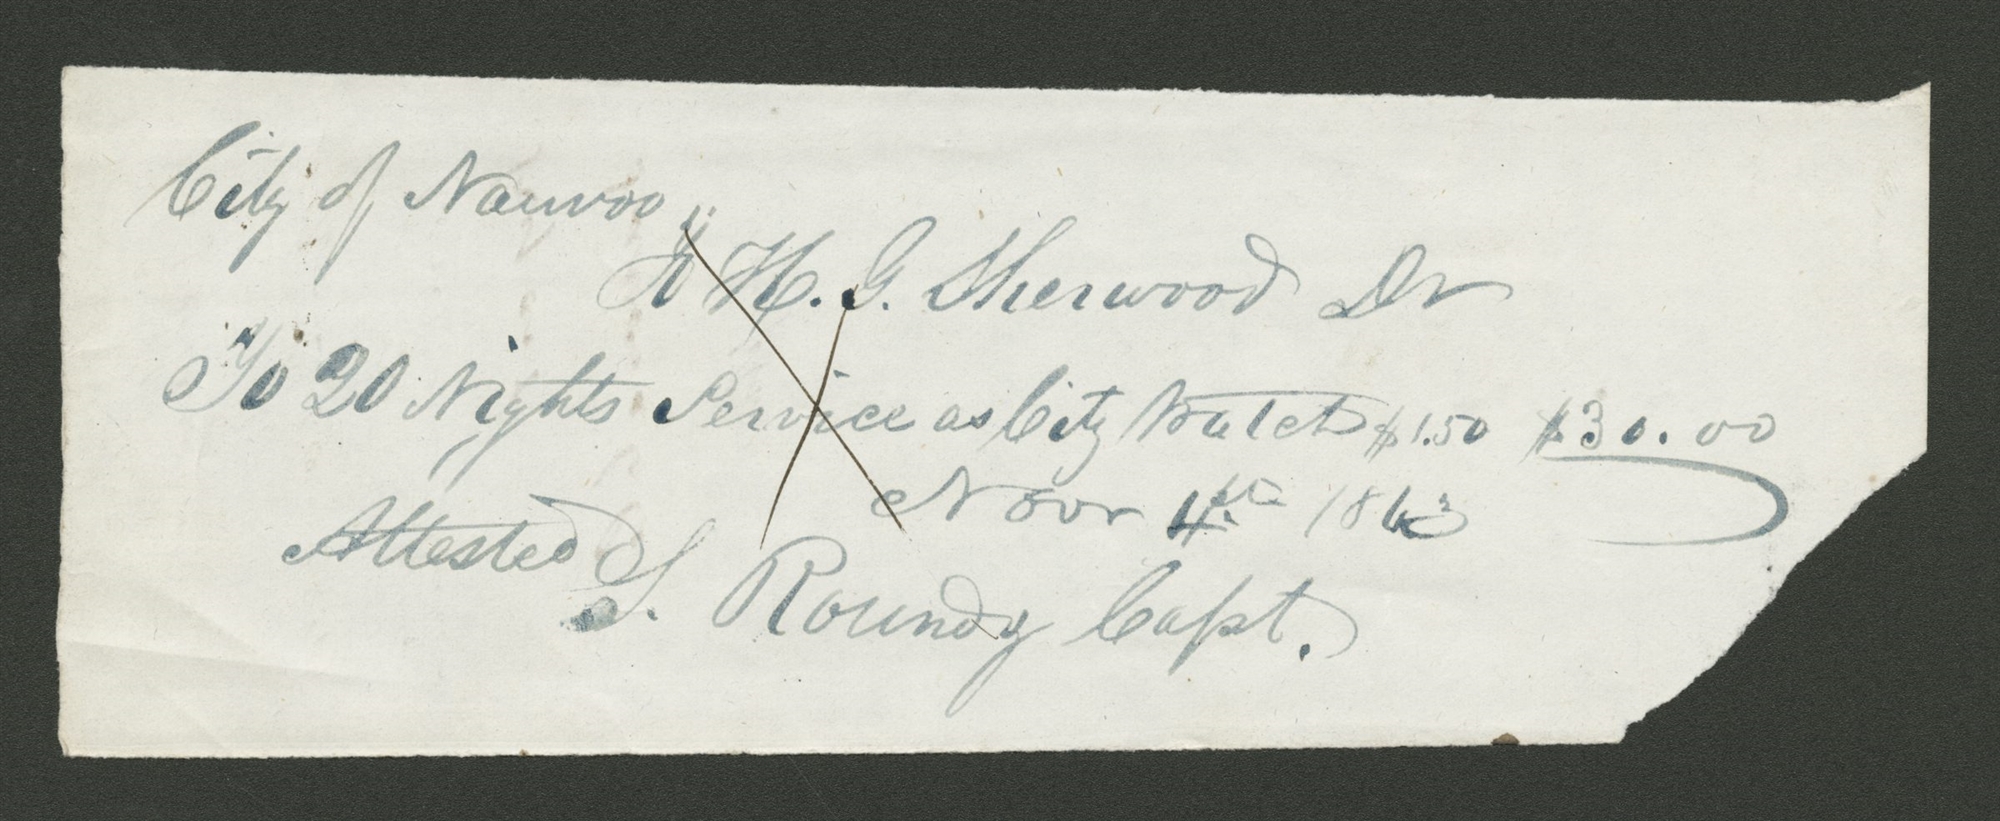 City of Nauvoo
To H. G. Sherwood Dr
To 20 Nights Service as City Watch $1.50 $30.00
Novr 4th 1843
Attested
S. Roundy Capt.